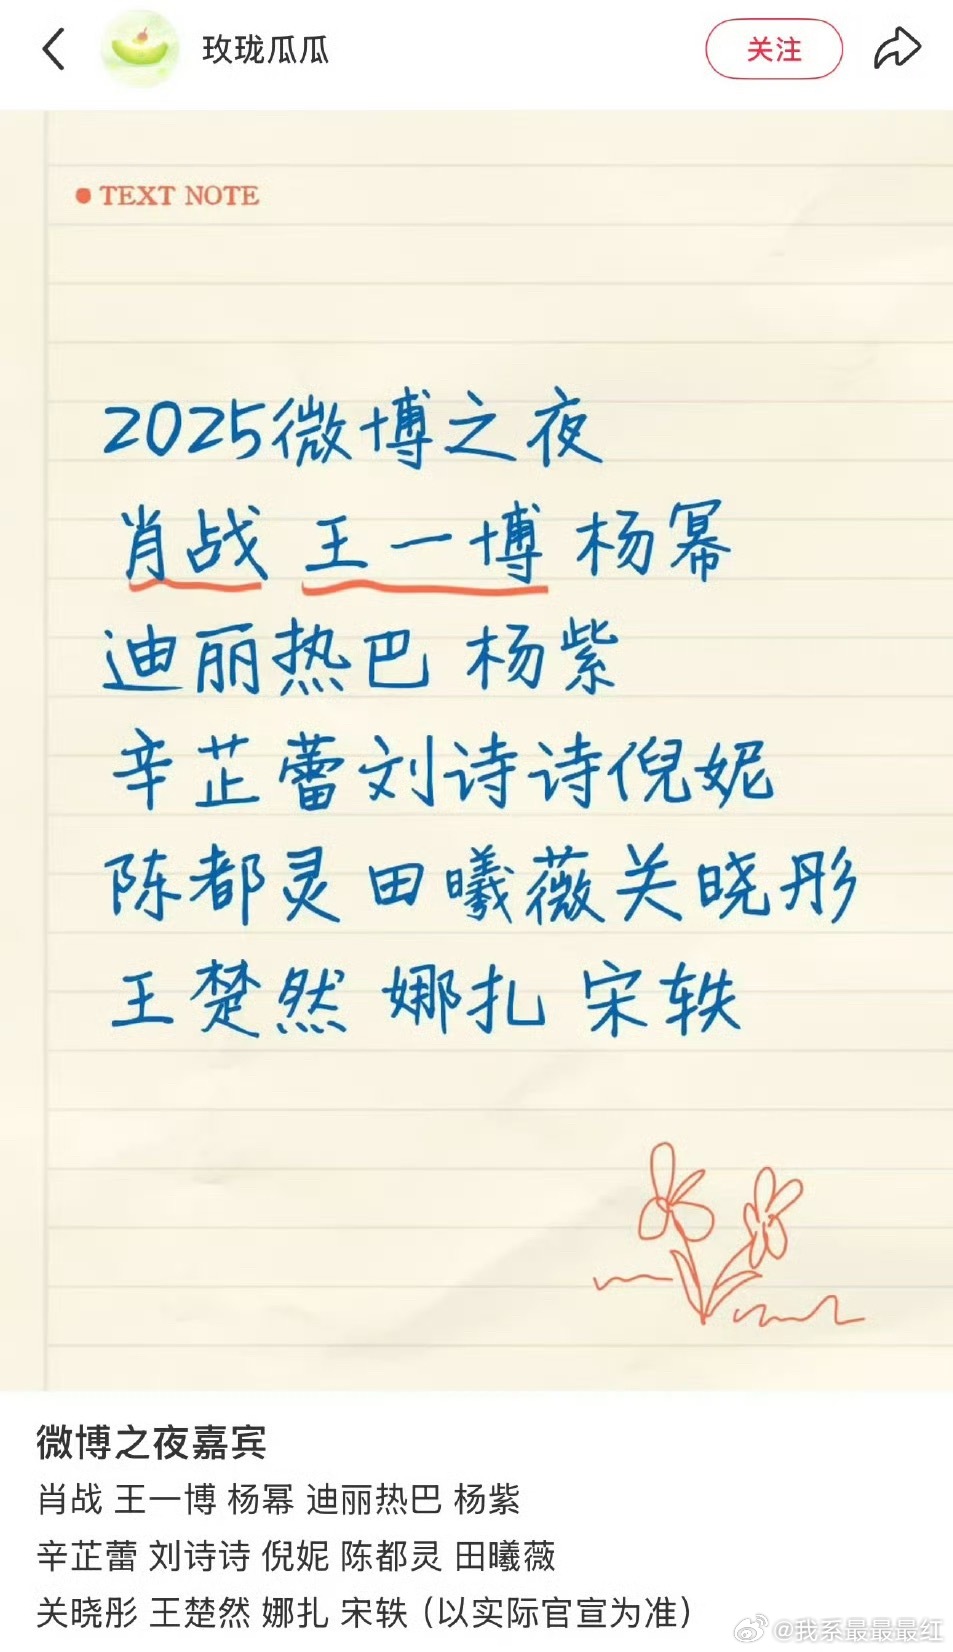 玫珑瓜瓜
关注
TEXT NOTE
2025微博之夜
肖战 王一博 杨幂
迪丽热巴 杨紫
辛芷蕾刘诗诗倪妮
陈都灵 田曦薇关晓彤
王楚然 娜扎 宋轶
微博之夜嘉宾
肖战 王一博 杨幂 迪丽热巴 杨紫
辛芷蕾 刘诗诗 倪妮 陈都灵 田曦薇
关晓彤 王楚然 娜扎 宋轶（以实际官宣为准）
@我系最最最红